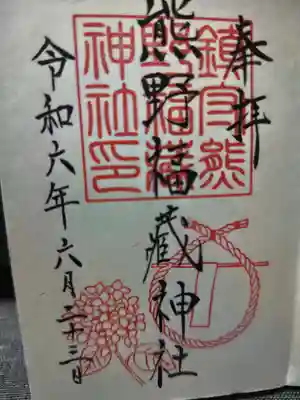 奉拝
鎮守熊
野福蔵
神社印
熊野福藏神社
令和六年六月二十三日